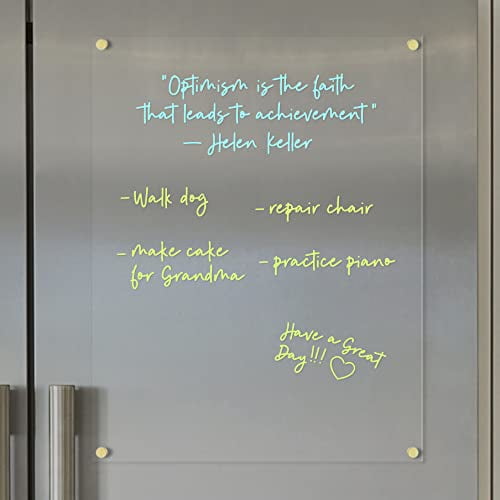 "Optimism is the faith
that leads to achievement"
— Helen Keller
- Walk dog
- repair chair
- make cake
for Grandma
- practice piano
Have a Great
Day!!! ♡